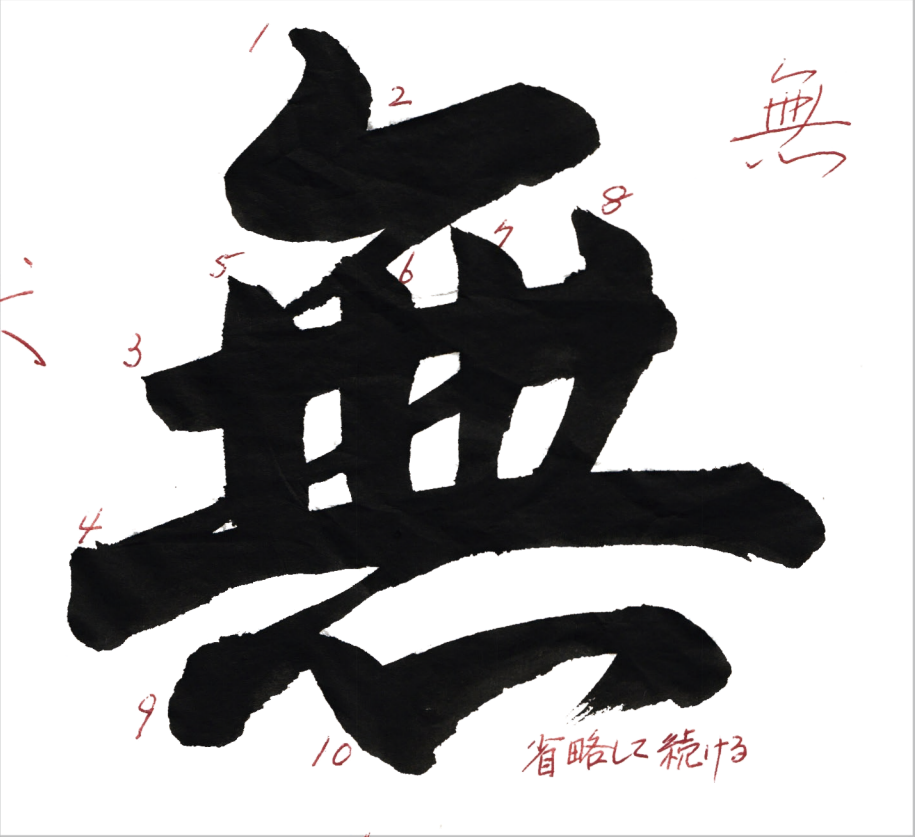 無
無
1
2
3
4
5
6
7
8
9
10
省略して続ける